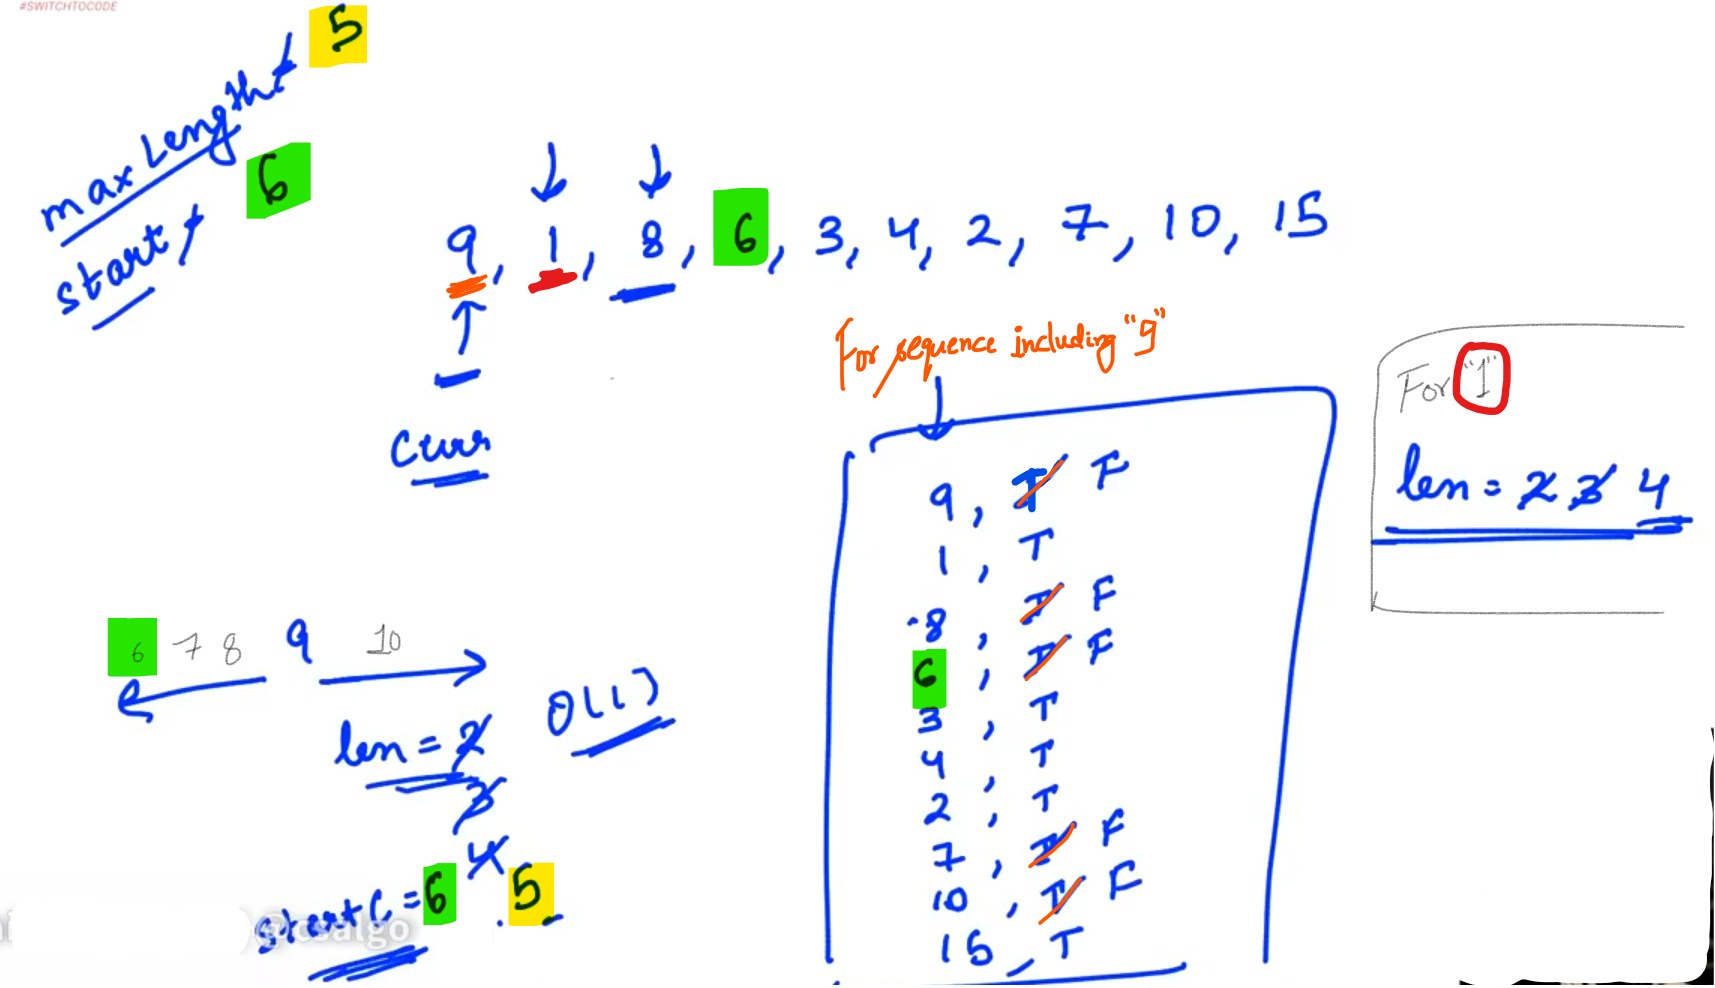 #SWITCHTOCODE
maxLength 5
start 6
9, 1, 8, 6, 3, 4, 2, 7, 10, 15
curr
For sequence including "9"
9, T F
1, T
8, T F
6, T F
3, T
4, T
2, T
7, T F
10, T F
15, T
For "1"
len = 2 3 4
6 7 8 9 10
O(1)
len = 2
3
4
5
startC = 6
@csalgo